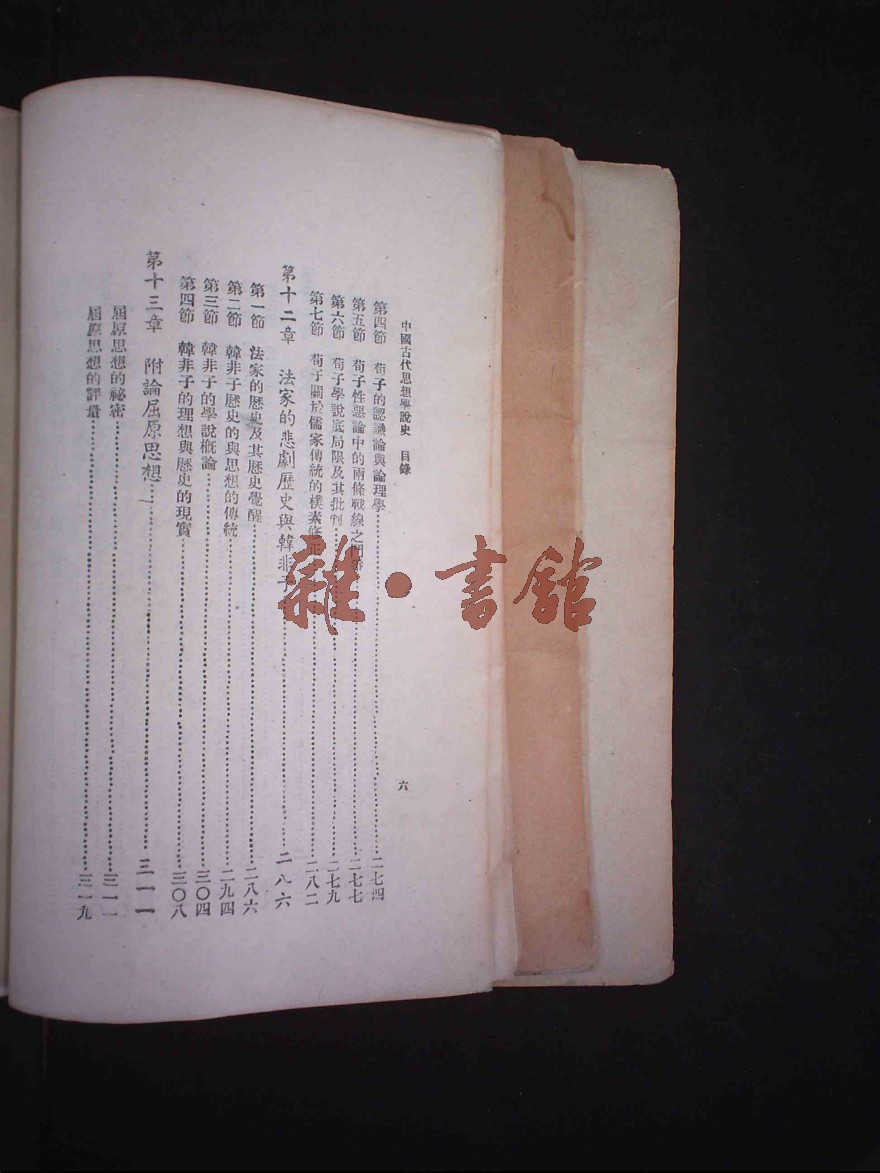 中國古代思想學說史 目錄 六
第四節 荀子的認識論與論理學……二七四
第五節 荀子性惡論中的兩條戰線之鬥爭……二七七
第六節 荀子學說底局限及其批判……二七九
第七節 荀子關於儒家傳統的樸素修正……二八二
第十二章 法家的悲劇歷史與韓非子……二八六
第一節 法家的歷史及其歷史覺醒……二八六
第二節 韓非子歷史的與思想的傳統……二九四
第三節 韓非子的學說概論……三〇四
第四節 韓非子的理想與歷史的現實……三〇八
第十三章 附論屈原思想……三一一
屈原思想的祕密……三一一
屈原思想的評量……三一九
雜·書館